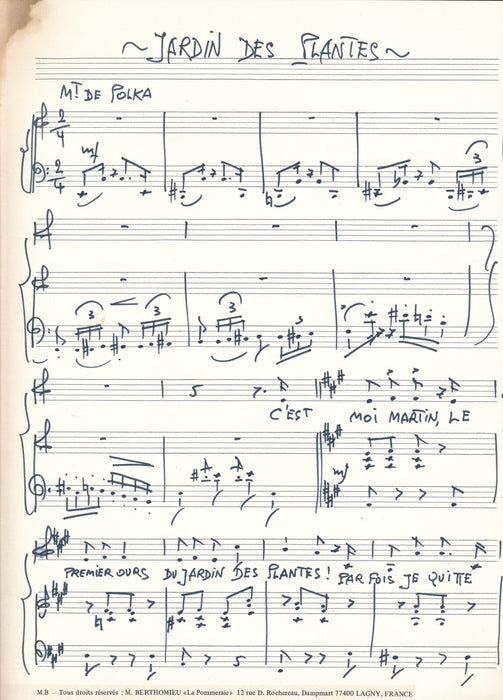 ~ JARDIN DES PLANTES ~
MT DE POLKA
2/4
mf
2/4
3
3 3 3 3
C'EST MOI MARTIN, LE
mf
PREMIER OURS DU JARDIN DES PLANTES! PARFOIS JE QUITTE
M.B – Tous droits réservés : M. BERTHOMIEU «La Pommeraie» 12 rue D. Rochereau, Dampmart 77400 LAGNY, FRANCE